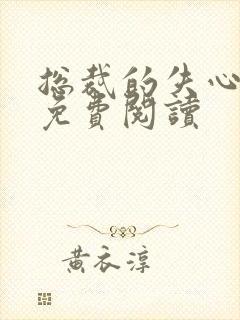 总裁的失心
免費閱讀
黃衣淳